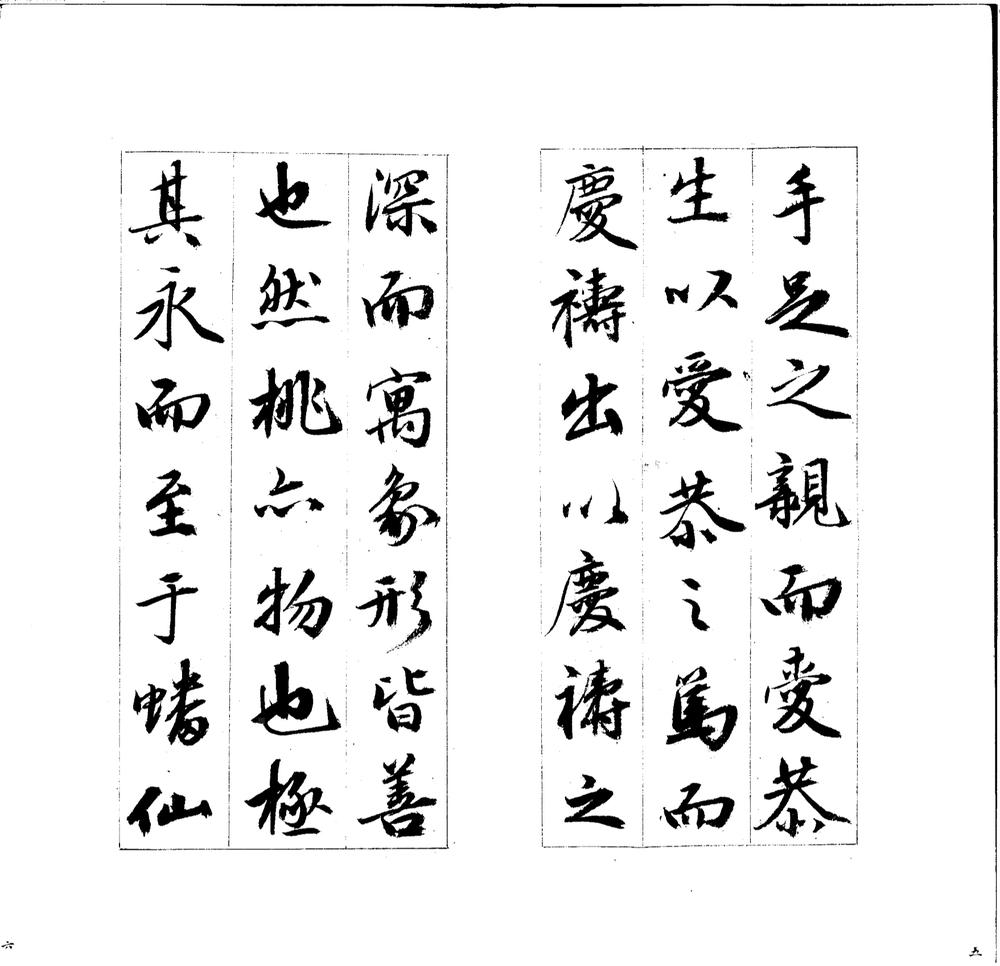 手足之親而愛恭
生以愛恭之篤而
慶禱出以慶禱之
五
深而寓象形皆善
也然桃亦物也極
其永而至于蟠仙
六